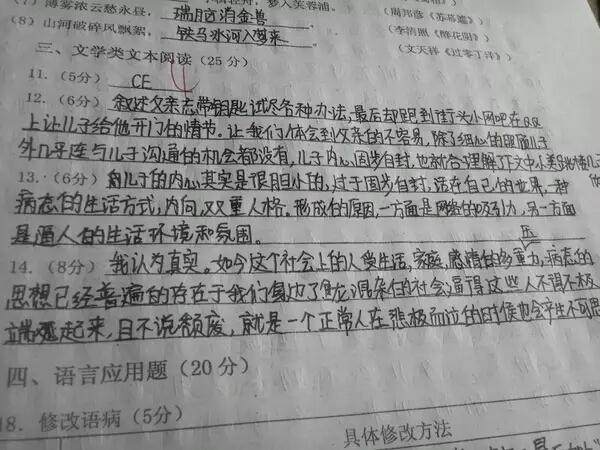 (7) 薄雾浓云愁永昼，瑞脑消金兽
(周邦彦《苏幕遮》)
(8) 山河破碎风飘絮，铁马冰河入梦来
(李清照《醉花阴》)
(文天祥《过零丁洋》)
三、文学类文本阅读（25分）
11.（5分） CE
12.（6分） 叙述父亲忘带钥匙试尽各种办法，最后却跑到街头小网吧在QQ
上让儿子给他开门的情节。让我们体会到父亲的不容易，除了细心的照顾儿子
外几乎连与儿子沟通的机会都没有，儿子内心固步自封，也就合乎理解了文中小
13.（6分） 儿子的内心其实是很胆小的，过于固步自封，活在自己的世界，一种
病态的生活方式，内向，双重人格。形成的原因，一方面是网络的吸引力，另一方面
是逼人的生活环境和氛围。
14.（8分） 我认为真实。如今这个社会上的人受生活，家庭，感情的多重压力，病态的
思想已经普遍的存在于我们身边了，龙混杂的社会逼得这些人不得不极
端起来，且不说颓废，就是一个正常人在悲极而泣的时候也会产生不可思
四、语言应用题（20分）
18. 修改语病（5分）
具体修改方法